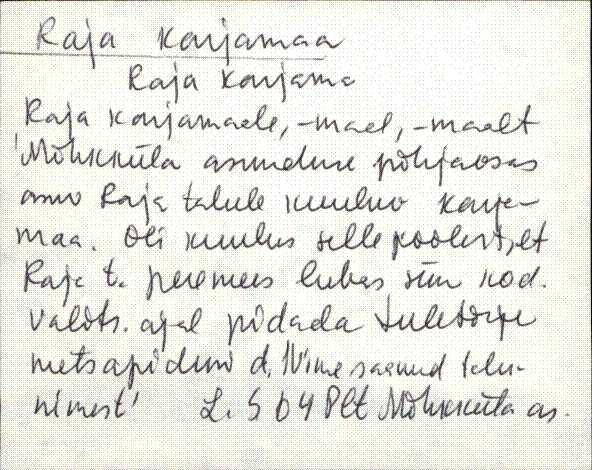 Raja karjamaa
Raja karjama
Raja karjamaale, -maal, -maalt
'Mõhkküla asunduse põhjaosas
asuv Raja talule kuuluv karja-
maa. Oli kuulus selle poolest, et
Raja t. peremees lubas siin kod.
valits. ajal pidada tuletõrje
metsapidusid. Nime saanud talu-
nimest' L. 504 Plt Mõhkküla as.